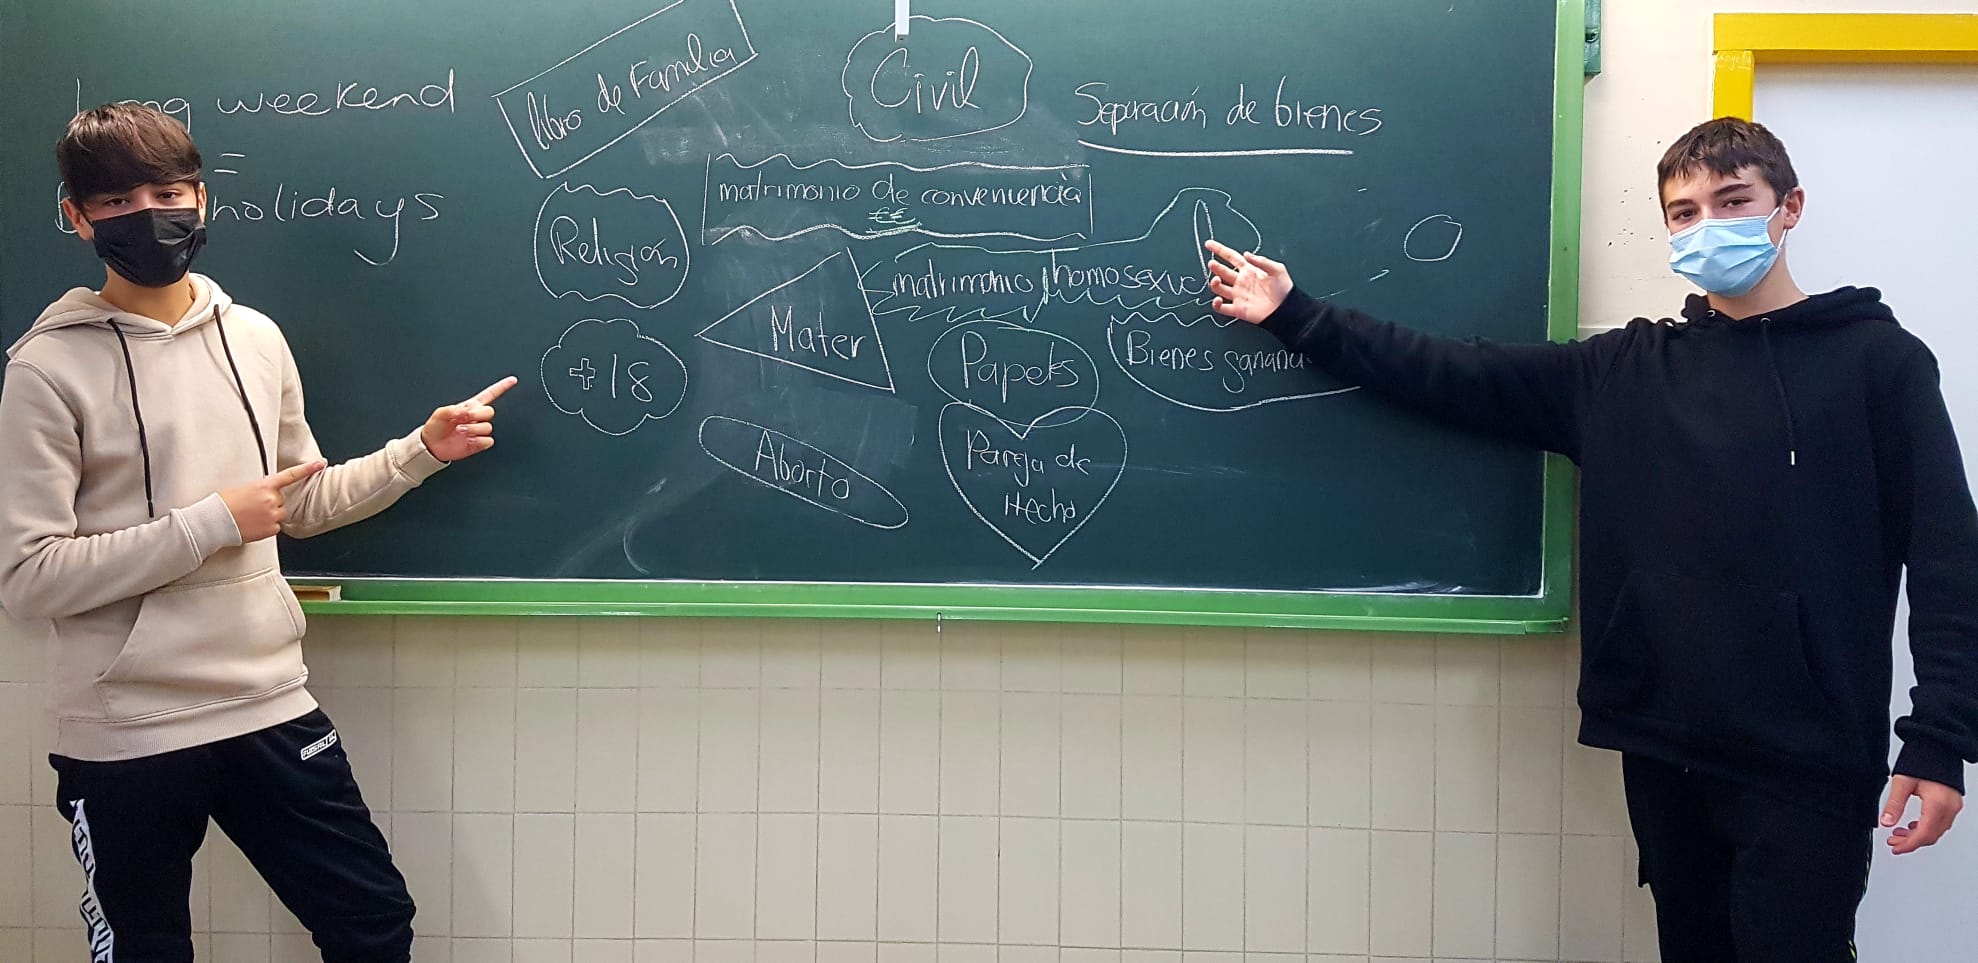 Long weekend
=
holidays
libro de Familia
Civil
Separación de bienes
matrimonio de conveniencia
€€
Religión
matrimonio homosexual
+18
Mater
Papeles
Bienes gananci
Aborto
Pareja de
Hecho